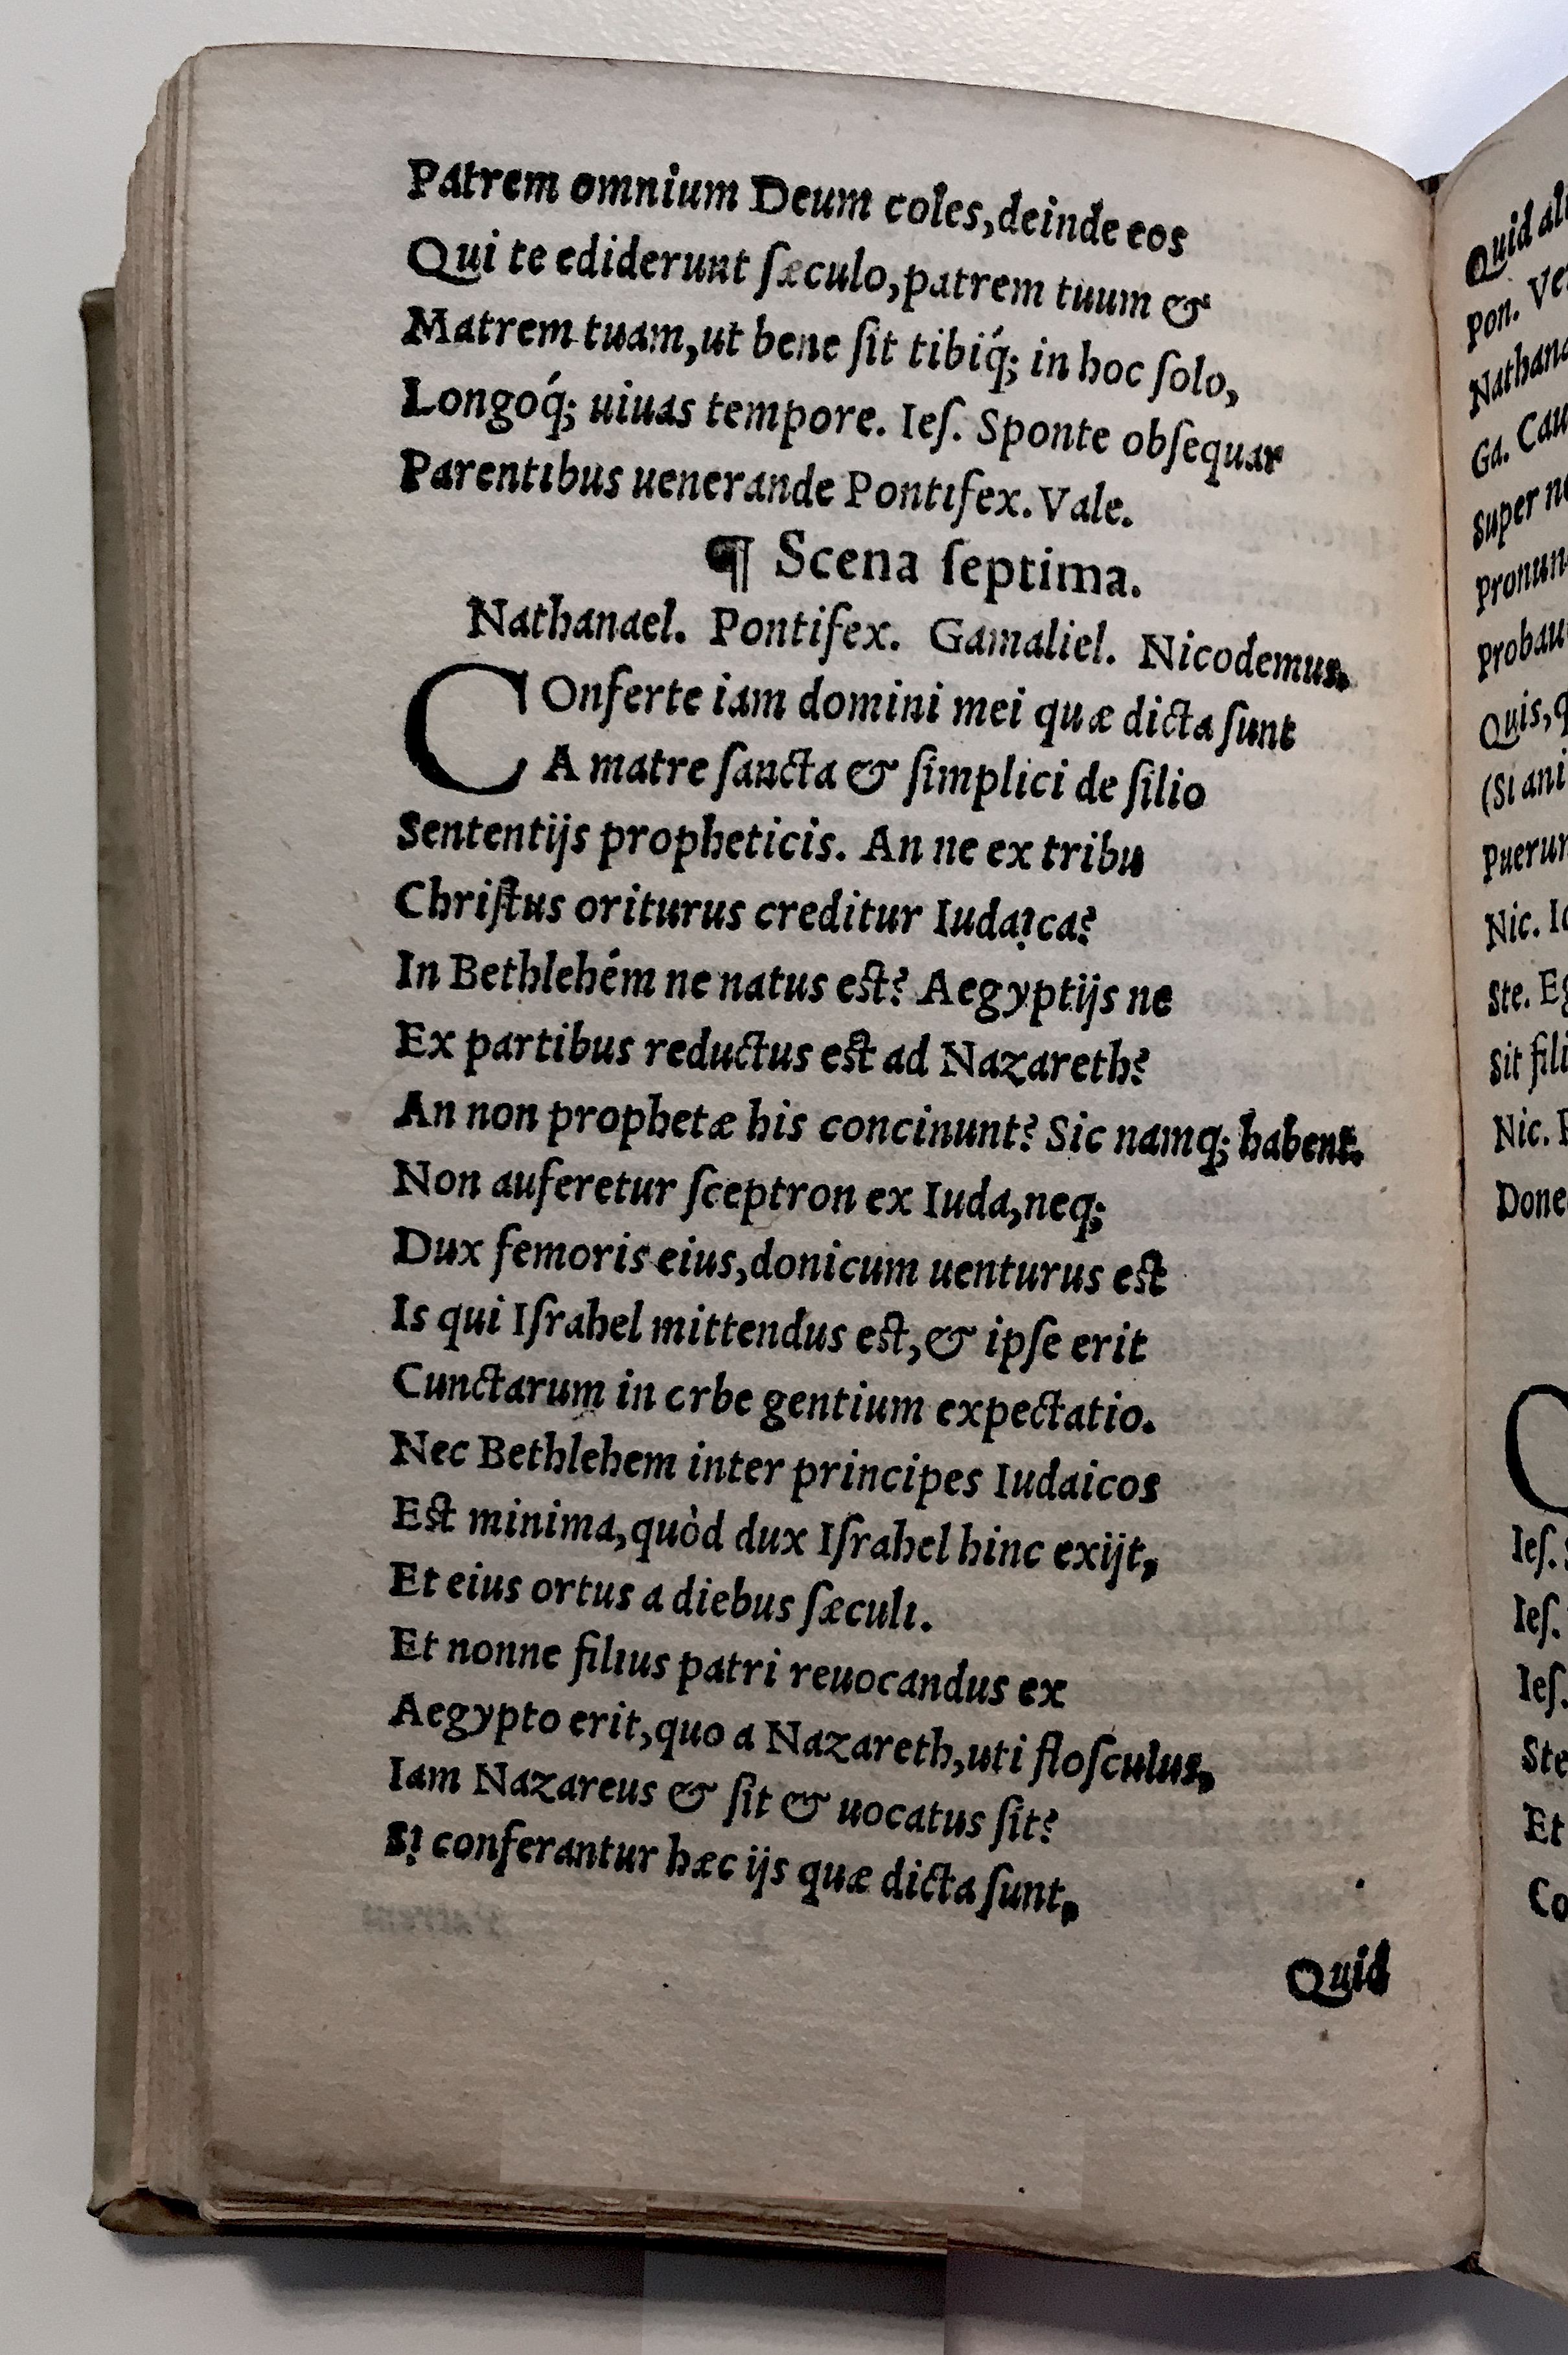 Patrem omnium Deum coles,deinde eos
Qui te ediderunt ſæculo,patrem tuum &
Matrem tuam,ut bene ſit tibiq́; in hoc ſolo,
Longoq́; uiuas tempore. Ieſ. Sponte obſequar
Parentibus uenerande Pontifex. Vale.
¶ Scena ſeptima.
Nathanael. Pontifex. Gamaliel. Nicodemus.
COnferte iam domini mei quæ dicta ſunt
A matre ſancta & ſimplici de filio
Sententijs propheticis. An ne ex tribu
Chriſtus oriturus creditur Iudaica?
In Bethlehém ne natus eſt? Aegyptijs ne
Ex partibus reductus eſt ad Nazareth?
An non prophetæ his concinunt? Sic namq; habent.
Non auferetur ſceptron ex Iuda,neq;
Dux femoris eius,donicum uenturus eſt
Is qui Iſrahel mittendus eſt,& ipſe erit
Cunctarum in orbe gentium expectatio.
Nec Bethlehem inter principes Iudaicos
Eſt minima,quòd dux Iſrahel hinc exijt,
Et eius ortus a diebus ſæculi.
Et nonne filius patri reuocandus ex
Aegypto erit,quo a Nazareth,uti floſculus,
Iam Nazareus & ſit & uocatus ſit?
Si conferantur hæc ijs quæ dicta ſunt,
Quid
Quid
Pon.
Nathana
Ga.
Super
Quis,
(Si
Nic.
Ste.
Sit
Nic.
Ieſ.
Ieſ.
Ieſ.
Ste
Et
Co